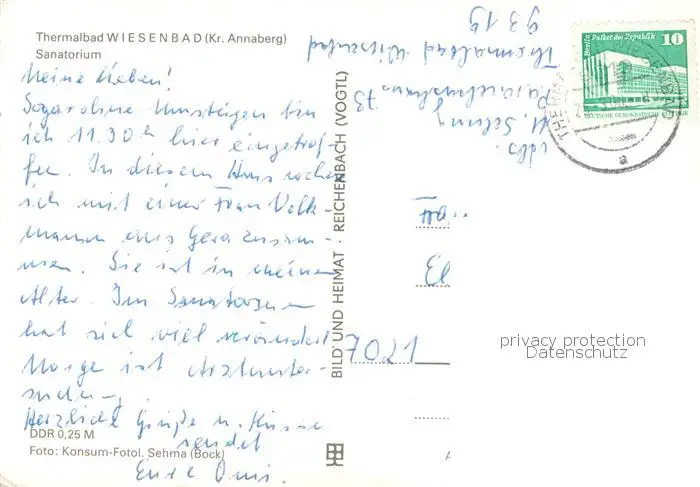 Thermalbad WIESENBAD (Kr. Annaberg)
Sanatorium
Meine Lieben!
Sogar ohne Umsteigen bin
ich 11.30 h hier eingetrof-
fen. In diesem Haus
ich mit einer Frau Volk-
mann aus Gera zusam-
men. Sie ist in meinem
Alter. Im Sanatorium
hat sich viel verändert
Morge ist Arztunter-
suchung.
Herzliche Grüße u. Küsse
sendet
Eure Omi.
DDR 0,25 M
Foto: Konsum-Fotol. Sehma (Bock)
BILD UND HEIMAT · REICHENBACH (VOGTL)
Abs.
73
Thermalbad Wiesenbad
9319
Berlin Palast der Republik
10
DEUTSCHE DEMOKRATISCHE
WIESENBAD
a
7021
privacy protection
Datenschutz